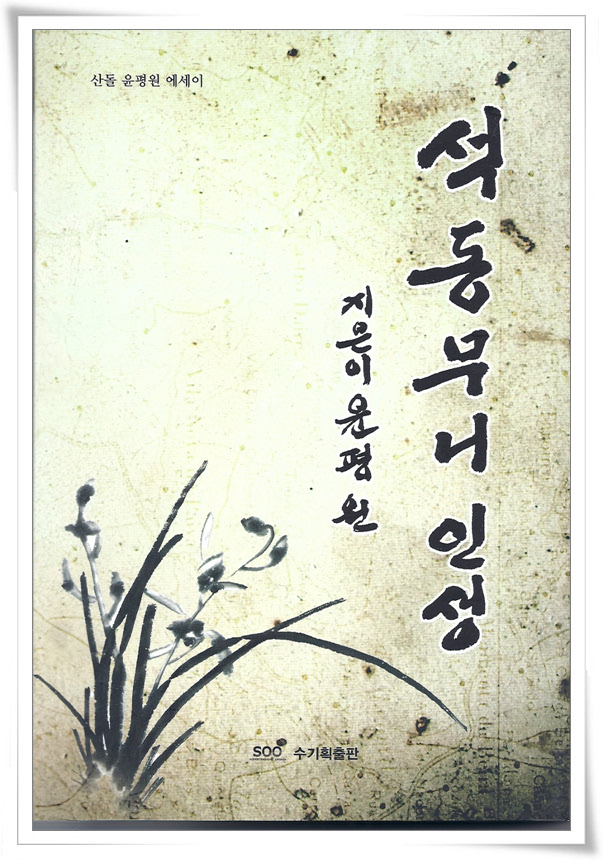 산돌 윤평원 에세이
석동무니 인생
지은이 윤평원
SOO 수기획출판